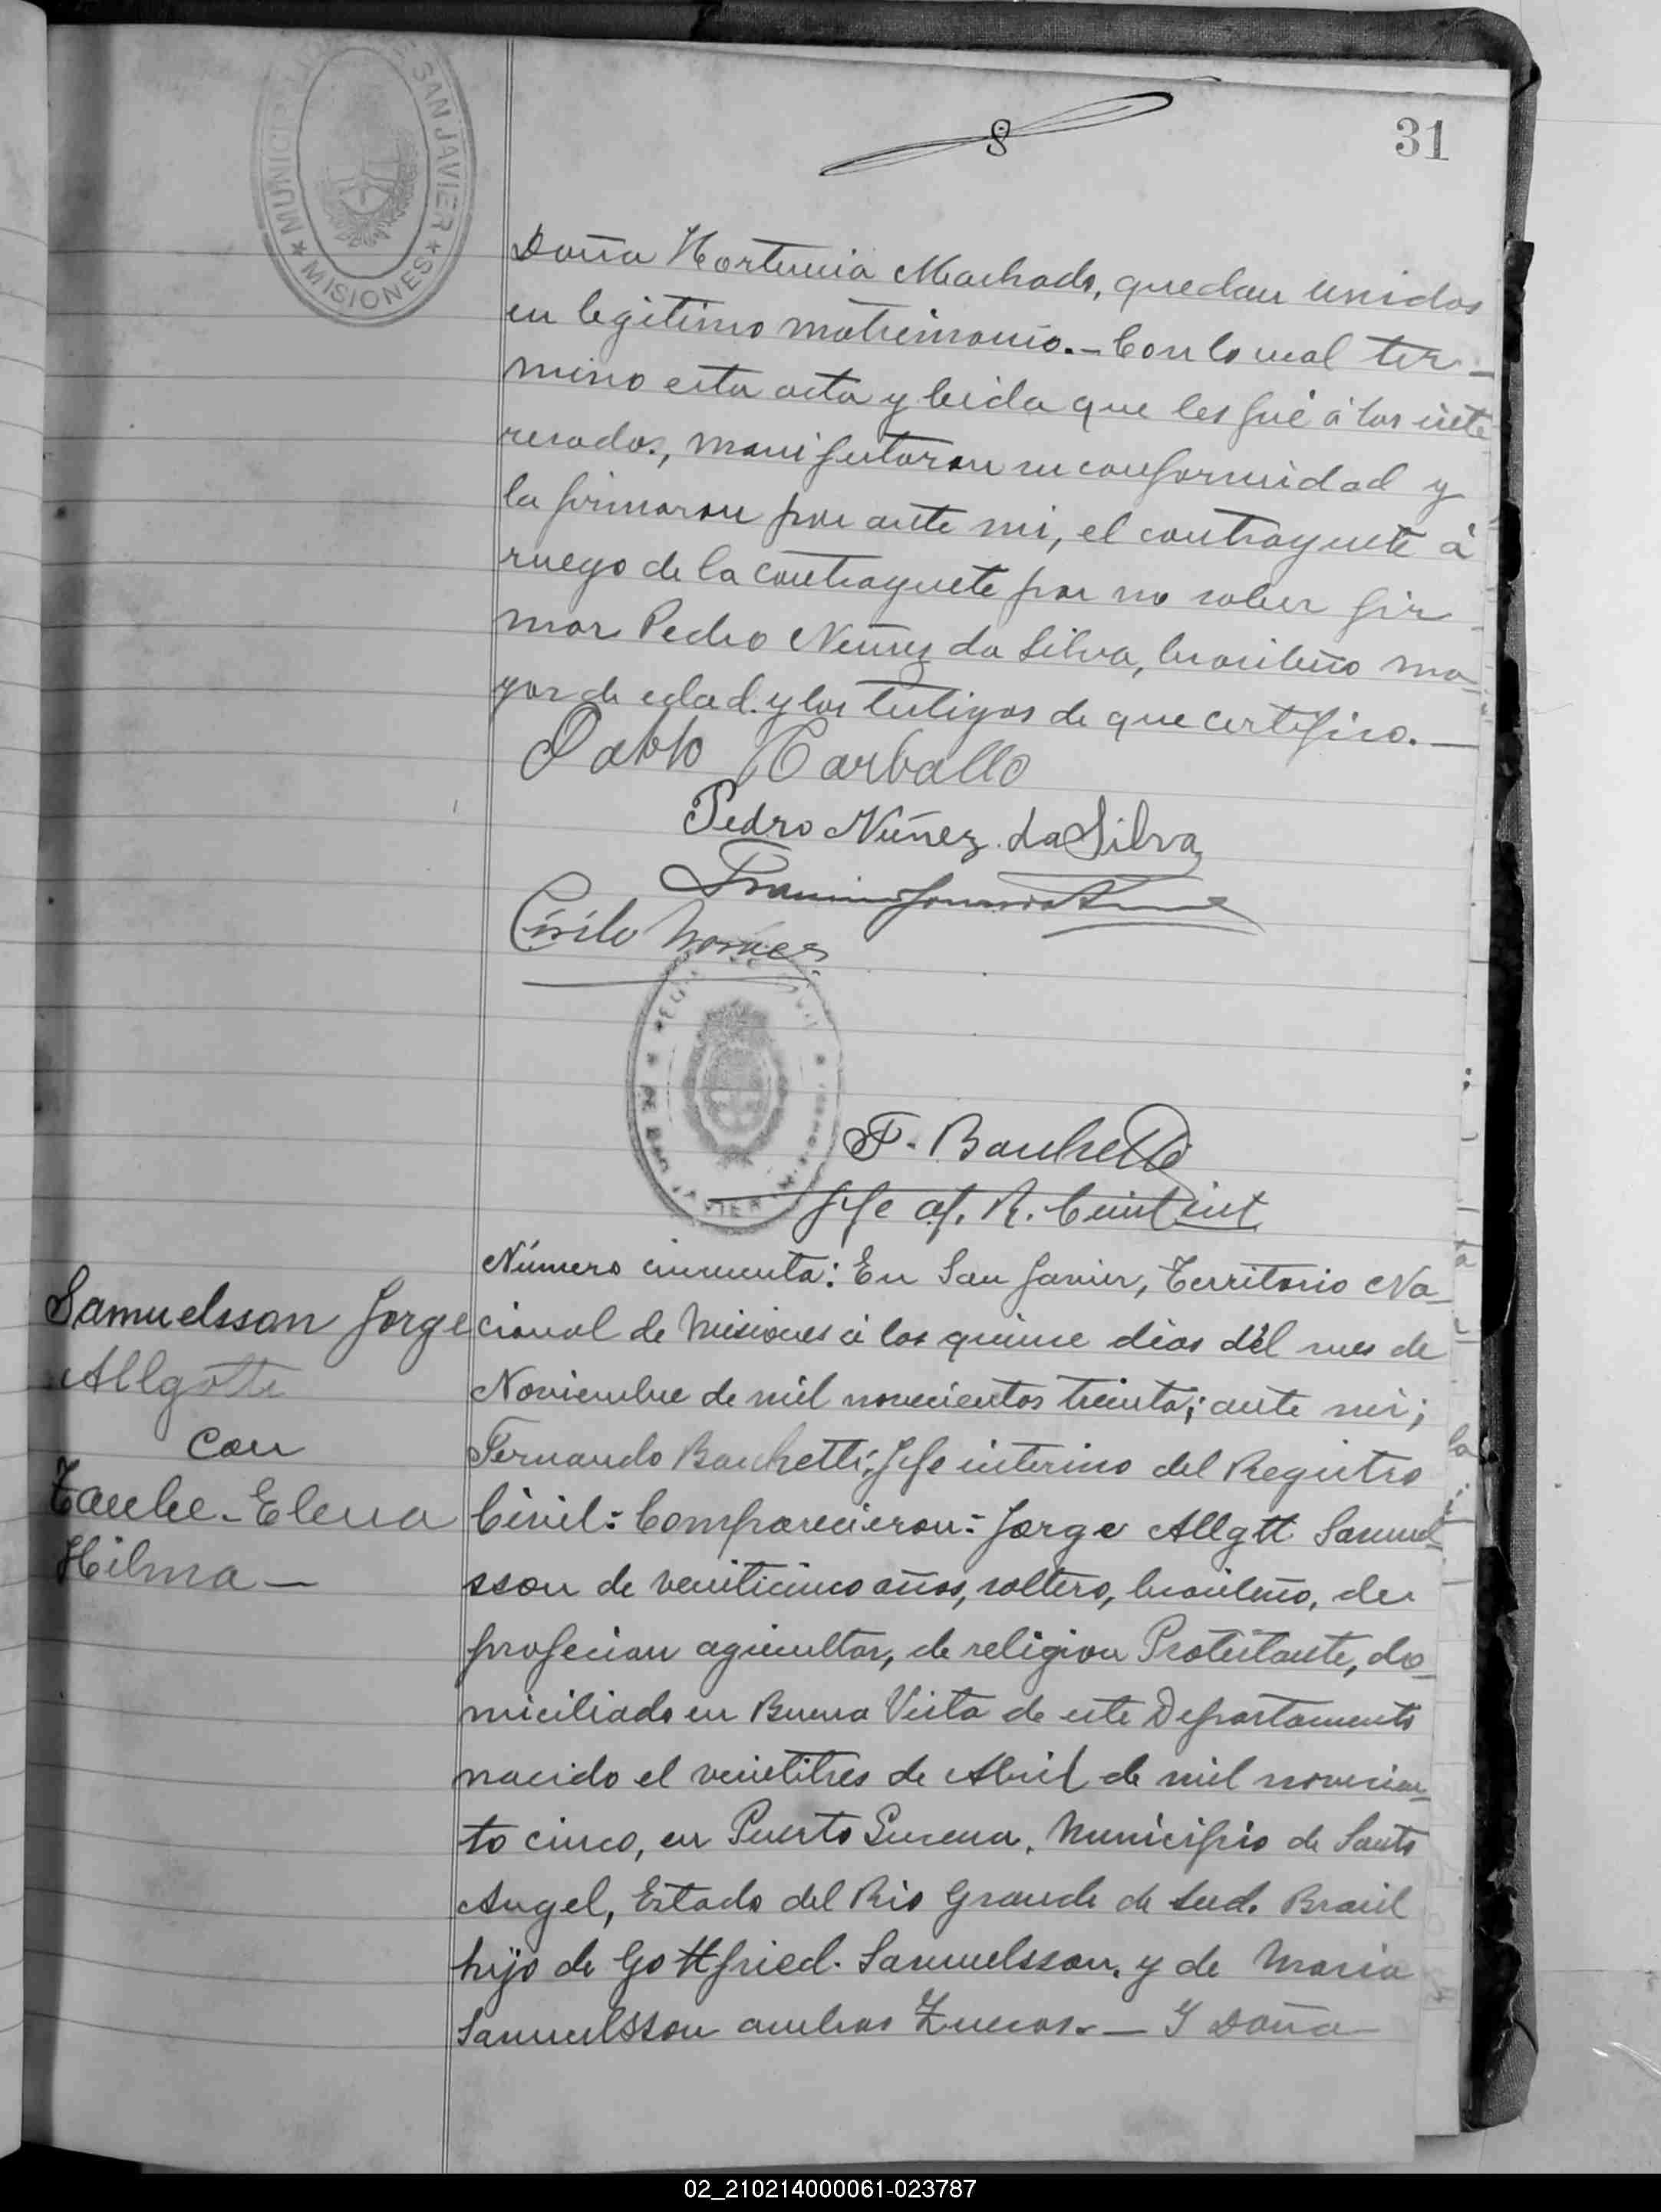 MUNICIPALIDAD DE SAN JAVIER
★ MISIONES ★
8
31
Doña Hortencia Machado, quedan unidos
en legitimo matrimonio.- Con lo cual ter-
mino esta acta y leida que les fué á los inte
resados, manifestaron su conformidad y
la firmaron por ante mi, el contrayente á
ruego de la contrayente por no saber fir-
mar Pedro Nuñez da Silva, brasileño ma-
yor de edad y los testigos de que certifico.—
Pablo Carballo
Pedro Núñez da Silva
Cirilo
DE SAN JAVIER
F. Bachetti
Jefe of. R. Civil int
Samuelsson Jorge
Allgotte
con
Taube-Elena
Hilma—
Número cincuenta: En San Javier, Territorio Na-
cional de Misiones á los quince dias del mes de
Noviembre de mil novecientos treinta; ante mi;
Fernando Bachetti, Jefe interino del Registro
Civil: Comparecieron: Jorge Allgtt Samuel-
sson de veinticinco años, soltero, brasileño, de
profecion agricultor, de religion Protestante, do-
miciliado en Buena Vista de este Departamento
nacido el veintitres de Abril de mil novecien-
to cinco, en Puerto Lucena. Municipio de Santo
Angel, Estado del Rio Grande de Sud. Brasil
hijo de Gottfried. Samuelsson. y de Maria
Samuelsson ambos Zuecos.— Y Doña
02_210214000061-023787